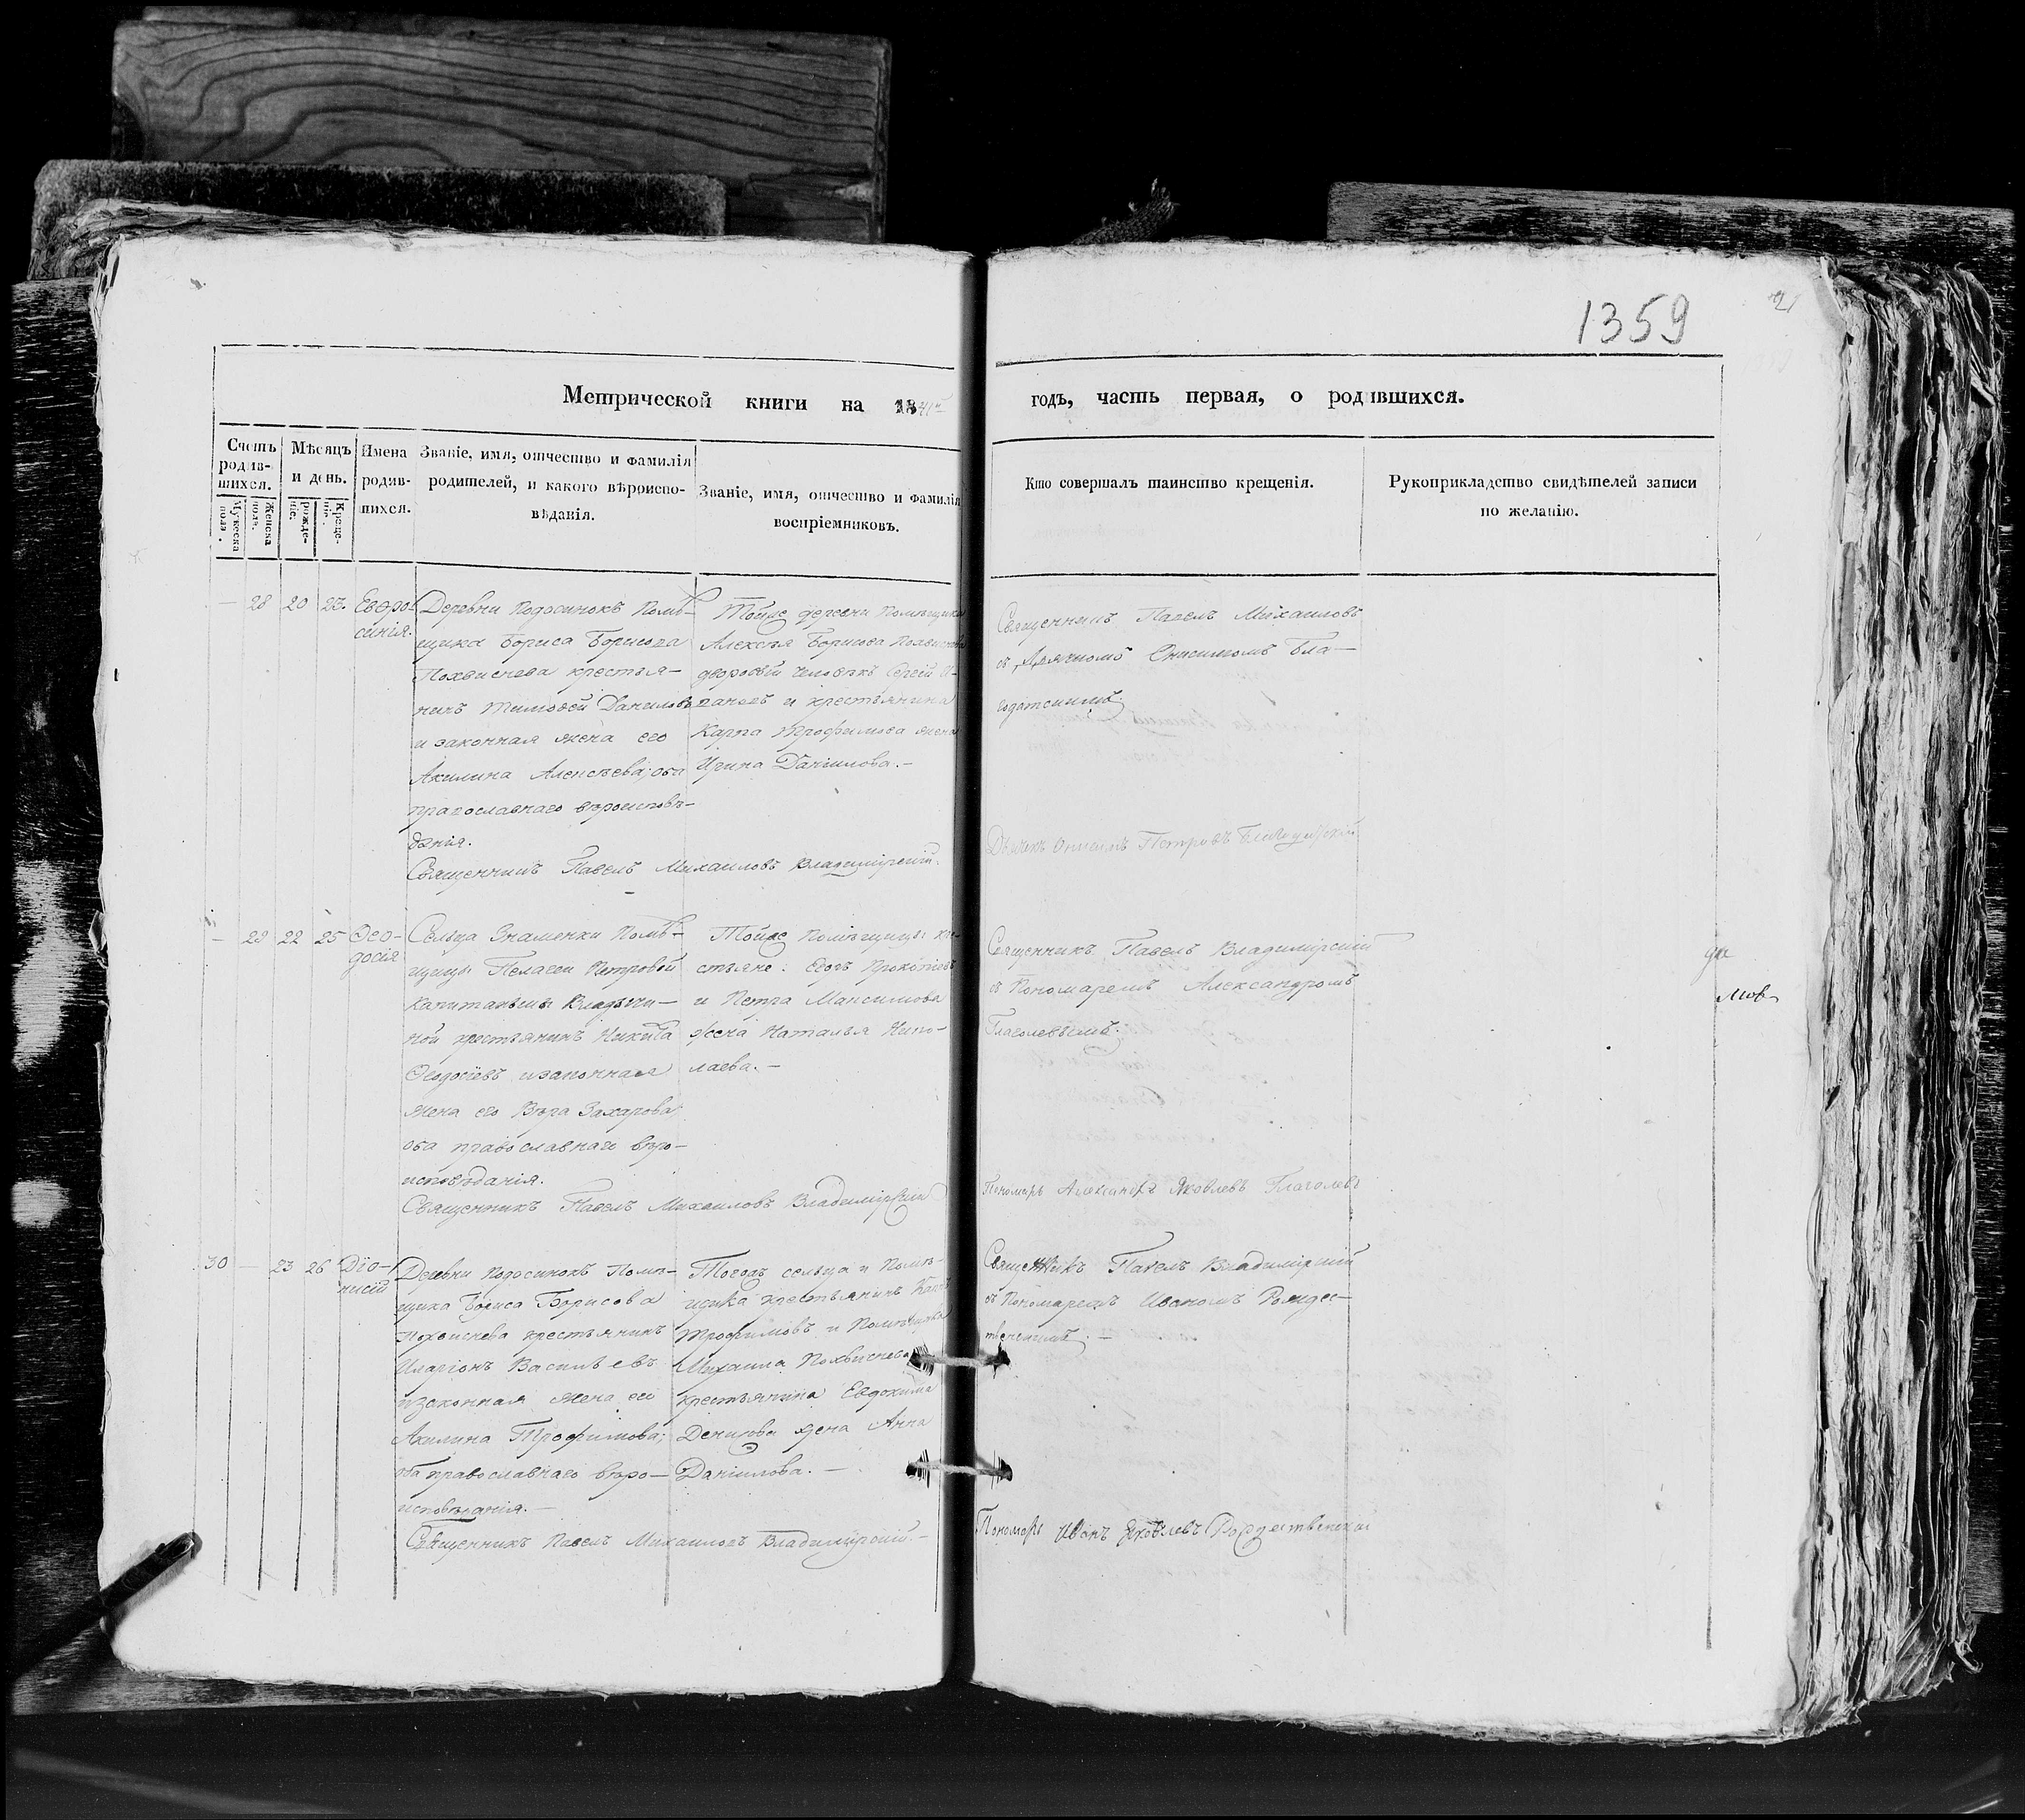 1359
21
Метрической книги на 1841й
годъ, часть первая, о родившихся.
Счетъ родив-шихся.
Мужеска пола.
Женска пола.
Мѣсяцъ и день.
рожде-нія.
Креще-нія.
Имена родив-шихся.
Званіе, имя, отчество и фамилія
родителей, и какого вѣроиспо-
вѣданія.
Званіе, имя, отчество и фамилія
воспріемниковъ.
Кто совершалъ таинство крещенія.
Рукоприкладство свидѣтелей записи
по желанію.
— 28 20 23. Евфро-
синія.
Деревни Подосинокъ Помѣ-
щика Бориса Борисова
Похвиснева крестья-
нинъ Тимофей Даниловъ
и законная жена его
Акилина Алексѣева; оба
православнаго вѣроисповѣ-
данія.
Священникъ Павелъ Михаиловъ Владимірскій.
Тойже деревни Помѣщика
Алексѣя Борисова Похвиснева
дворовый человѣкъ Сергій И-
вановъ и крестьянина
Карпа Трофимова жена
Ирина Даніилова.—
Священникъ Павелъ Михаиловъ
съ Дьячкомъ Онисимомъ Бла-
годатскимъ.
Дьячекъ Онисимъ Петровъ Благодатскій
— 29 22 25 Ѳео-
досія
Сельца Знаменки Помѣ-
щицы Пелагеи Петровой
Капитанши
ной крестьянинъ Никита
Ѳеодосіевъ и законная
жена его Вѣра Захарова
оба православнаго вѣро-
исповѣданія.
Священникъ Павелъ Михаиловъ Владимірскій
Тойже Помѣщицы кре-
стьяне: Егоръ Прокопіевъ
и Петра Максимова
жена Наталья Нико-
лаева.—
Священникъ Павелъ Владимірскій
съ Пономаремъ Александромъ
Глаголевымъ.
Пономарь Александръ Яковлевъ Глаголевъ
30 — 23 26 Діо-
нисій
Деревни Подосинокъ Помѣ-
щика Бориса Борисова
Похвиснева крестьянинъ
Иларіонъ Васильевъ
и законная жена его
Акилина Трофимова;
оба православнаго вѣро-
исповѣданія.—
Священникъ Павелъ Михаиловъ Владимірскій—
Тогожъ сельца и Помѣ-
щика крестьянинъ Карпъ
Трофимовъ и Помѣщика
Михаила Похвиснева
крестьянина Евдокима
Денисова жена Анна
Даніилова.—
Священникъ Павелъ Владимірскій
съ Пономаремъ Иваномъ Рождес-
твенскимъ.—
Пономарь Иванъ Яковлевъ Рождественскій